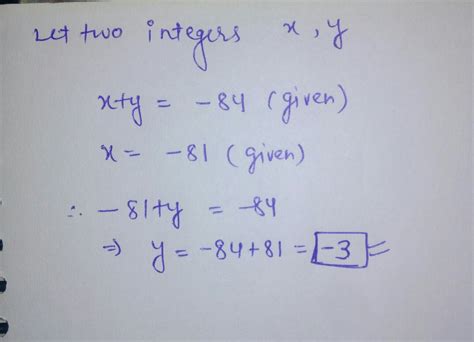 Let two integers x, y
x+y = -84 (given)
x = -81 (given)
∴ -81+y = -84
⇒ y = -84+81 = -3